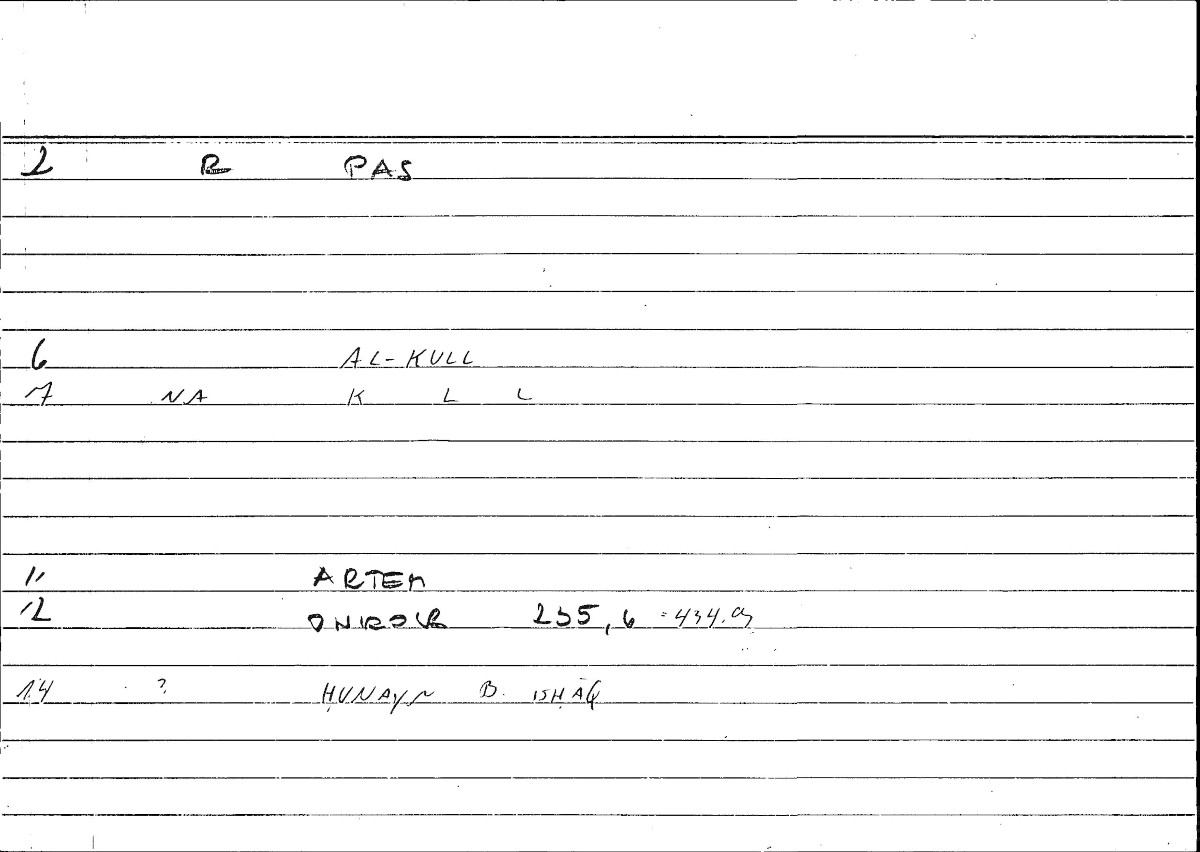 2 R PAS
6 AL-KULL
7 NA K L L
11 ARTEM
12 ONIROCR 235,6 = 434.9
14 ? ḤUNAYN B. ISḤĀQ